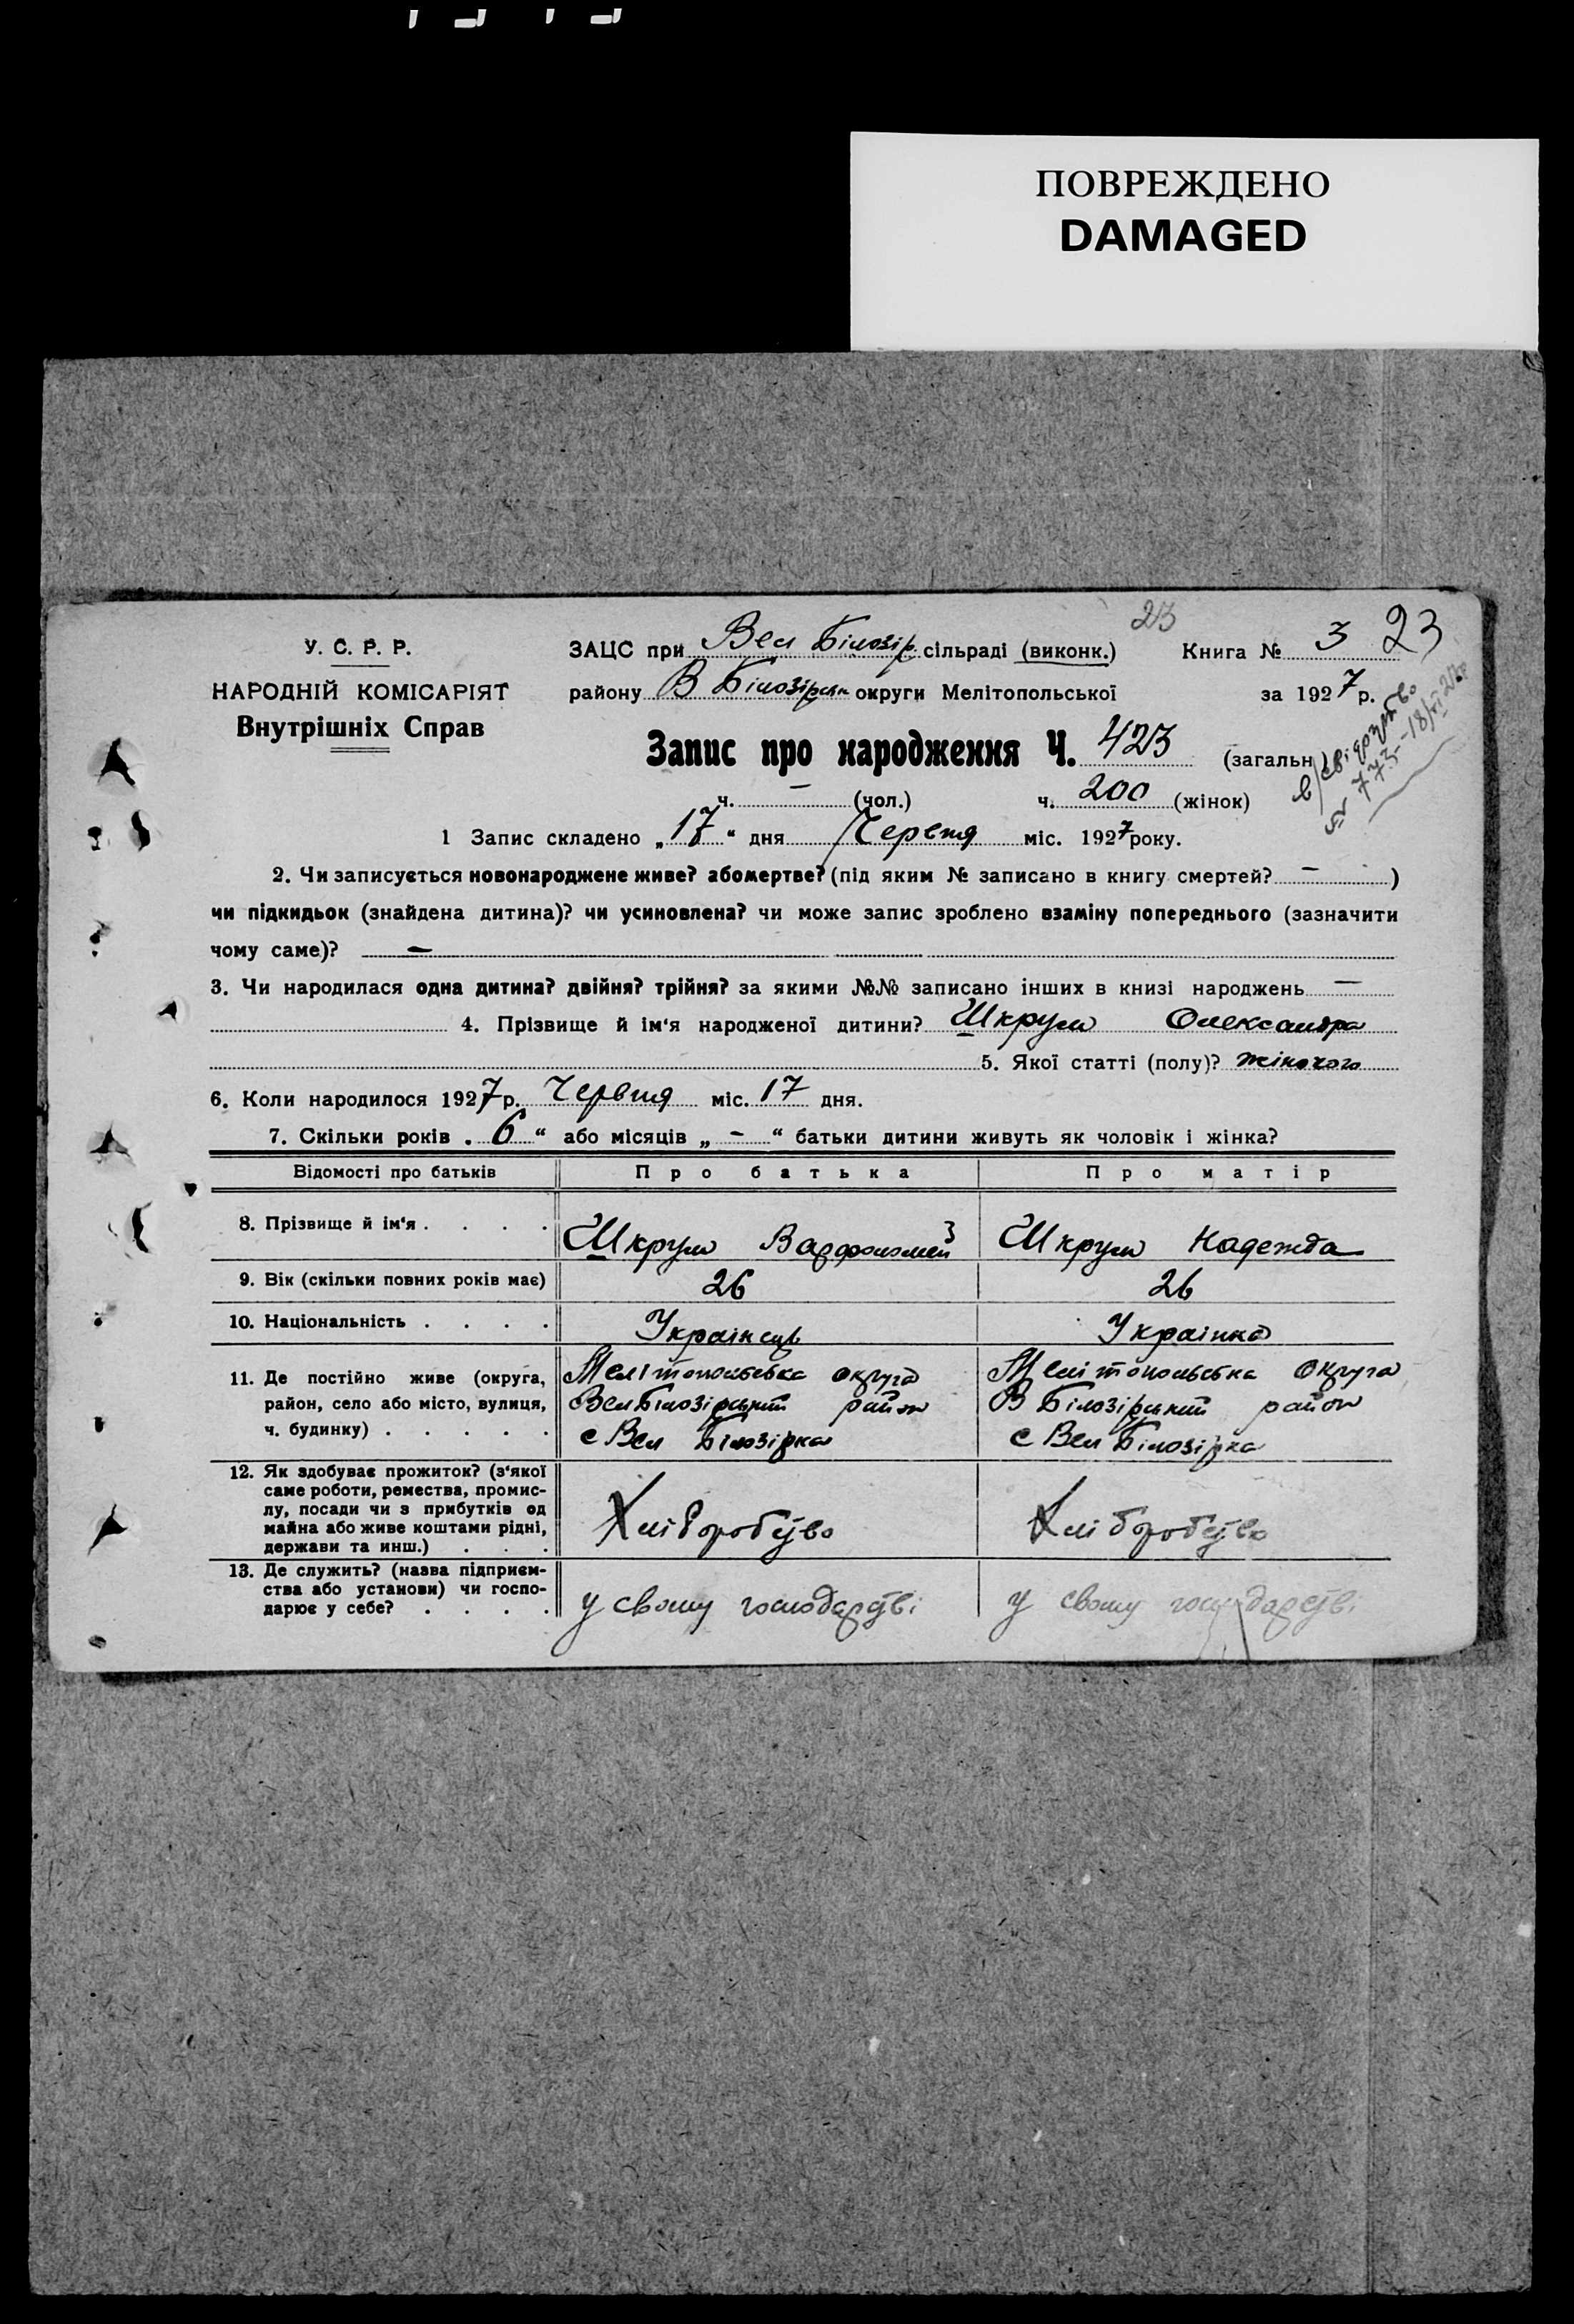 ПОВРЕЖДЕНО
DAMAGED
23
У. С. Р. Р.
НАРОДНІЙ КОМІСАРІЯТ
Внутрішніх Справ
ЗАЦС при Вел Білозір. сільраді (виконк.) Книга № 3 23
району В Білозірськ округи Мелітопольської за 1927 р.
Запис про народження Ч. 423 (загальн.)
ч. — (чол.) ч. 200 (жінок)
в/свідоцтво
№ 773 - 18/VI
1 Запис складено „17“ дня Червня міс. 1927 року.
2. Чи записується новонароджене живе? або мертве? (під яким № записано в книгу смертей? — )
чи підкидьок (знайдена дитина)? чи усиновлена? чи може запис зроблено взаміну попереднього (зазначити
чому саме)? —
3. Чи народилася одна дитина? двійня? трійня? за якими №№ записано інших в книзі народжень —
4. Прізвище й ім'я народженої дитини? Шкрум Олександра
5. Якої статті (полу)? жіночого
6. Коли народилося 1927 р. Червня міс. 17 дня.
7. Скільки років „6“ або місяців „-“ батьки дитини живуть як чоловік і жінка?
Відомості про батьків Про батька Про матір
8. Прізвище й ім'я . . . . Шкрум Варфоломей 3 Шкрум Надежда
9. Вік (скільки повних років має) 26 26
10. Національність . . . . Українець Українка
11. Де постійно живе (округа, Мелітопольська округа Мелітопольська округа
район, село або місто, вулиця, Вел Білозірський район В Білозірський район
ч. будинку) . . . . . с Вел Білозірка с Вел Білозірка
12. Як здобуває прожиток? (з'якої
саме роботи, ремества, промис-
лу, посади чи з прибутків од
майна або живе коштами рідні,
держави та инш.) . . . Хліборобство Хліборобство
13. Де служить? (назва підприєм-
ства або установи) чи госпо-
дарює у себе? . . . . у своєму господарстві у своєму господарстві